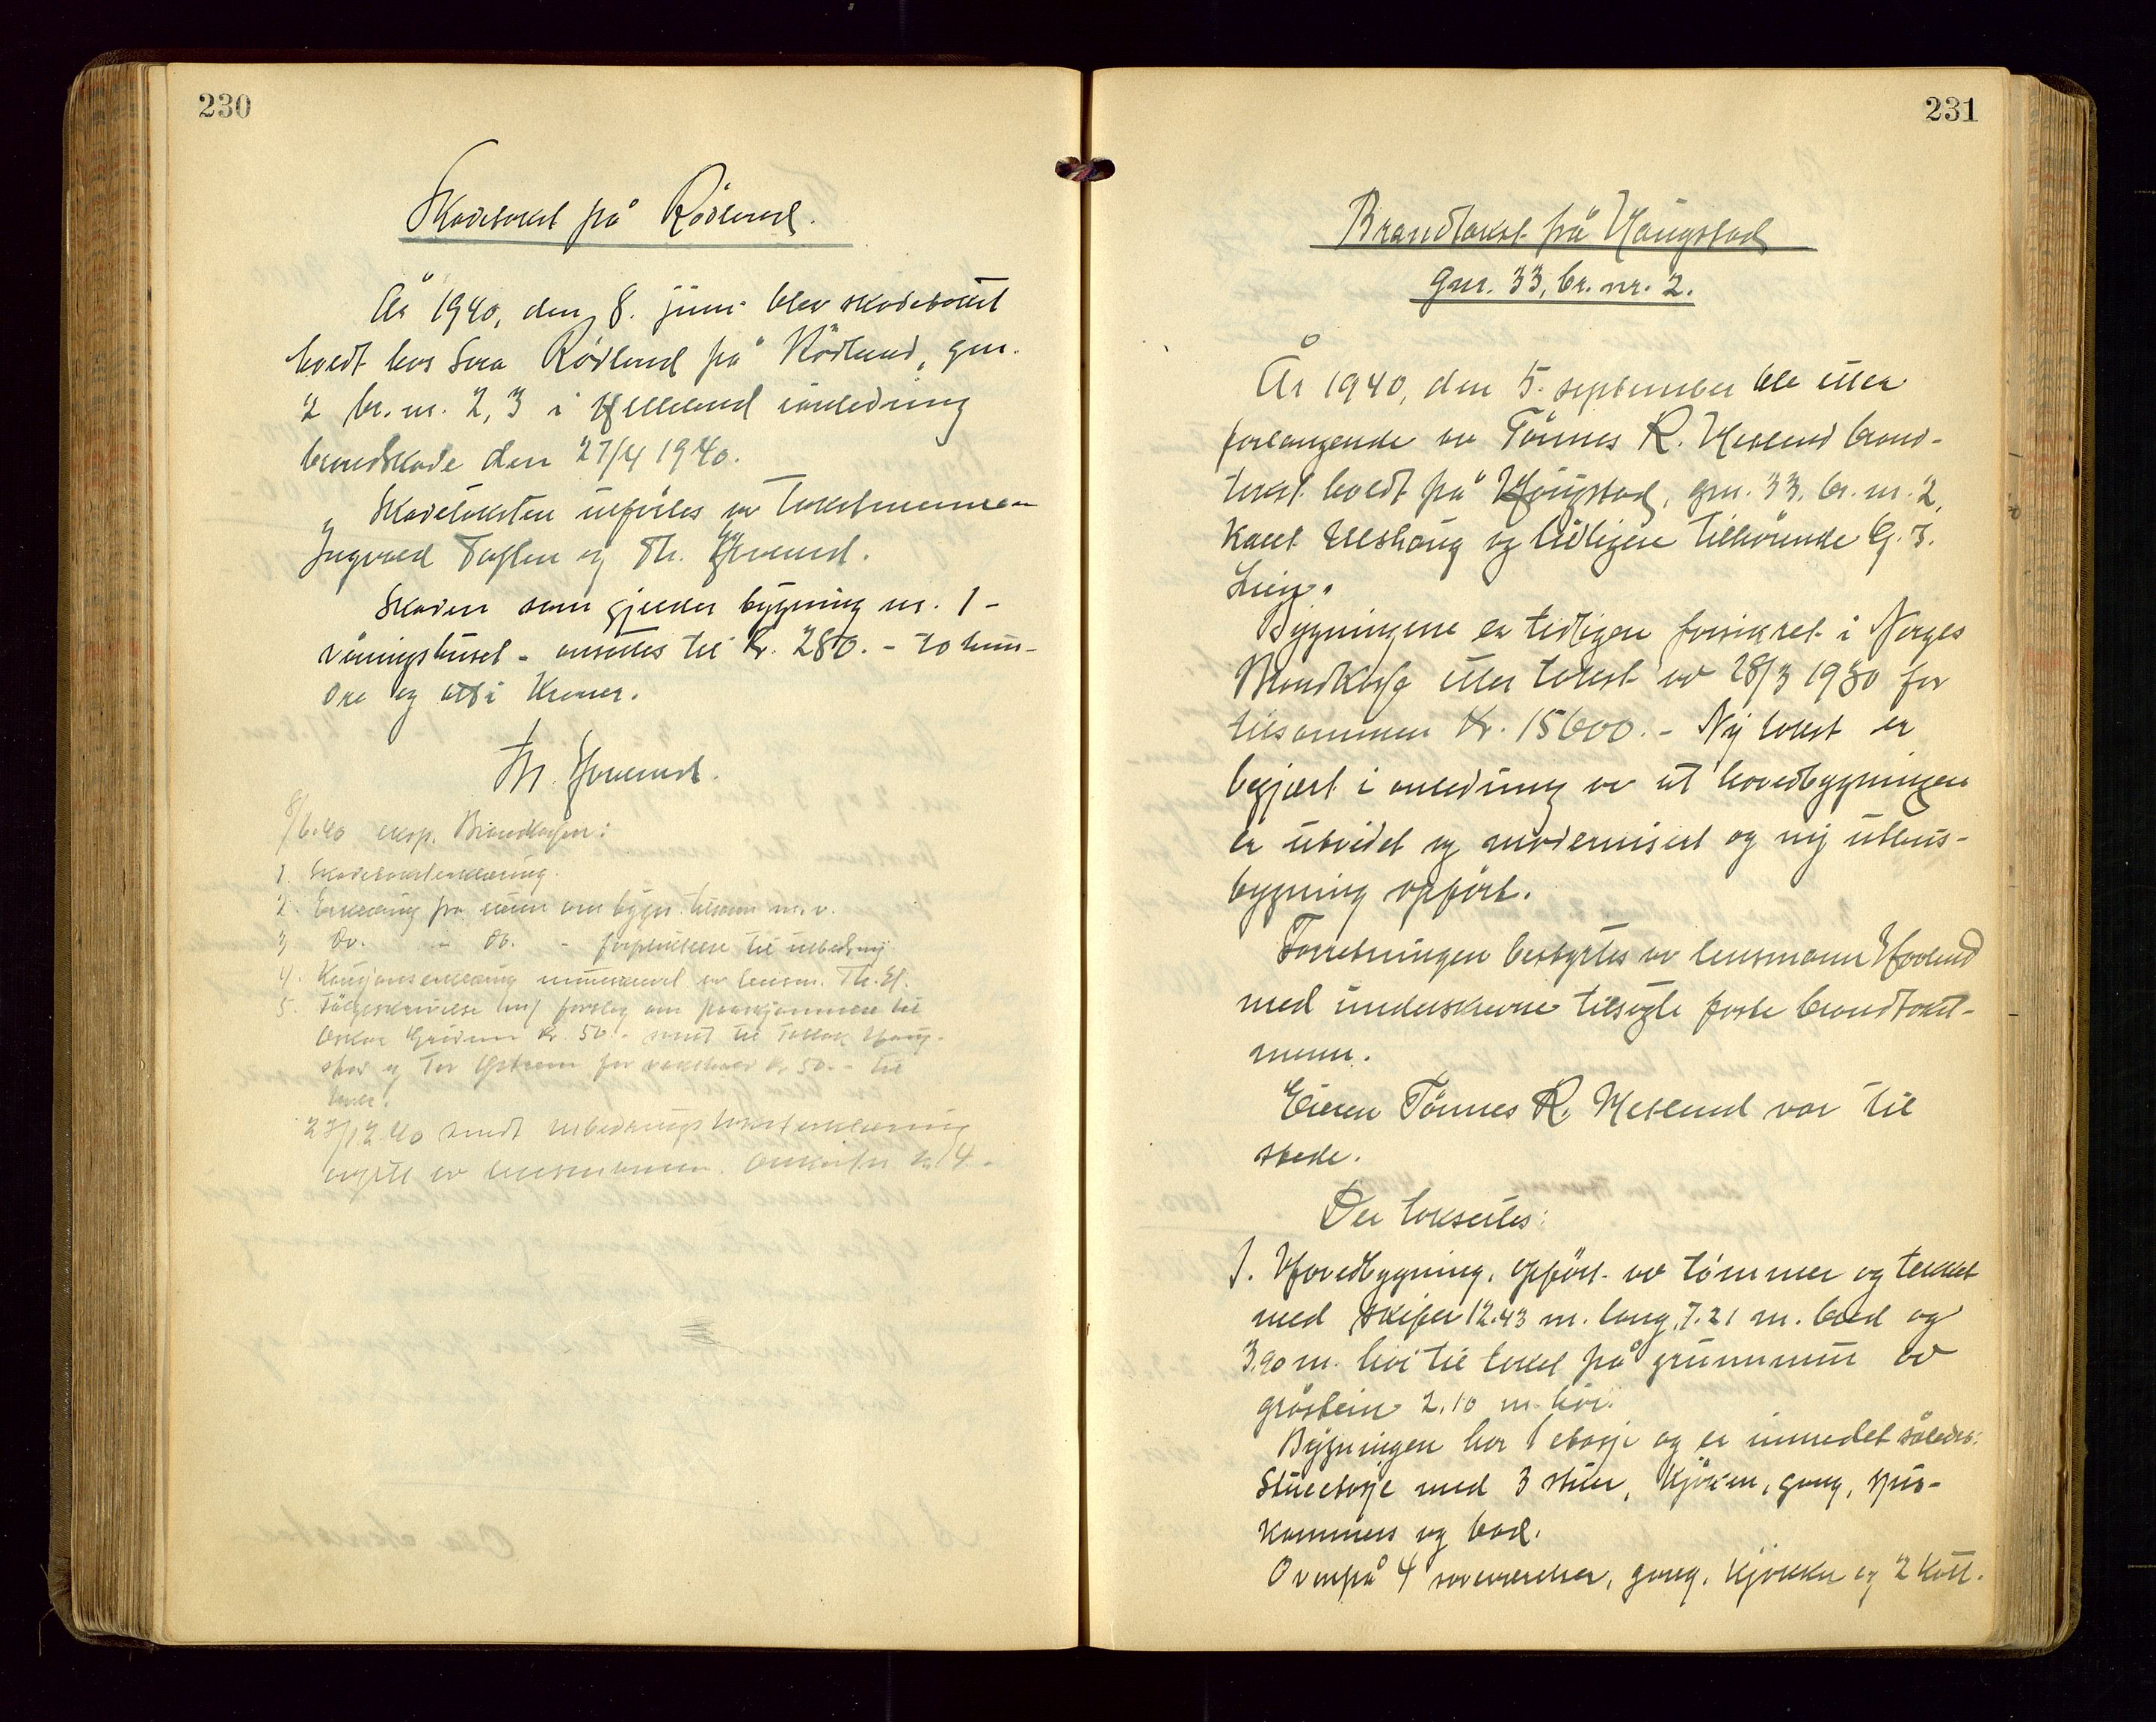 230
Skadetakst på Rødland.
År 1940, den 8. juni blev skadetakst
holdt hos Rødland på Rødland, gnr.
2 br. nr. 2, 3 i Helleland i anledning
brandskade den 27/4 1940.
Skadetaksten utførtes av takstmennene
Ingvald og Th. Hovland.
Skaden som gjelder bygning nr. 1 -
våningshuset - ansettes til kr. 280.- to hun-
dre og otti kroner.
Th. Hovland.
8/6.40 eksp. Brandkassen:
1. Skadetaksterklæring.
2. Erklæring fra eieren om bygn. m. v.
3 Do. - do. - forpliktelse til utbedring
4. Kausjonserklæring av lensm. Th. H.
5. Følgeskrivelse forslag om til
kr. 50.- samt til
og Tor for kr 50.- til
27/12.40 sendt utbedringstaksterklæring
av lensmannen. kr 4.-
231
Brandtakst på Haugstad
gnr. 33, br. nr. 2.
År 1940, den 5. september ble etter
forlangende av Tönnes R. Hesland brand-
takst holdt på Haugstad, gnr. 33, br. nr. 2,
kalt Ulshaug og tidligere tilhørende G. T.
Lein.
Bygningene er tidligere forsikret i Norges
Brandkasse etter takst av 28/3 1930 for
tilsammen kr. 15600.- Ny takst er
begjært i anledning av at hovedbygningen
er utvidet og modernisert og ny uthus-
bygning opført.
Forretningen bestyrtes av lensmann Hovland
med underskrevne tilsagte faste brandtakst-
menn.
Eieren Tönnes R. Hesland var til
stede.
Der takseres:
1. Hovedbygning, opført av tömmer og tekket
med skifer 12.43 m. lang, 7.21 m. bred og
3.90 m. høi til taket på grunnmur av
gråstein 2.10 m. høi.
Bygningen har 1 etasje og er innredet således:
Stueetasje med 3 stuer, kjøken, gang, spis-
kammers og bad.
Ovenpå 4 soveværelser, gang, kjøkken og 2 kott.